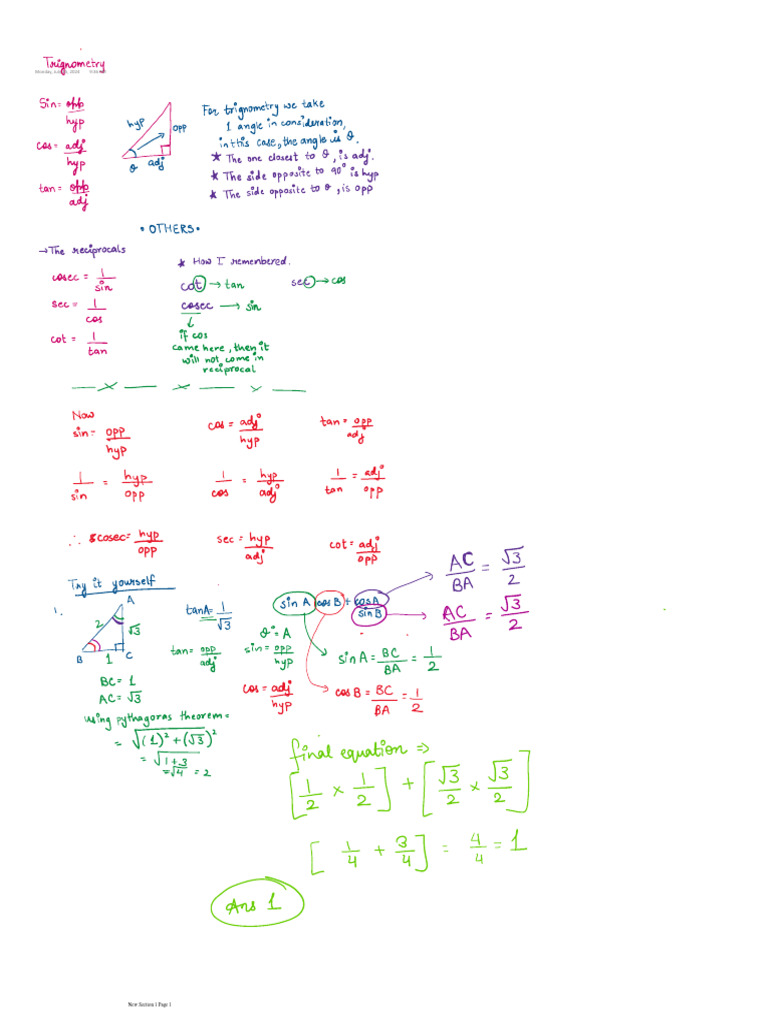 Trignometry
Monday, July
Sin = opp/hyp
cos = adj/hyp
tan = opp/adj
hyp
opp
θ adj
For trignometry we take
1 angle in consideration,
in this case, the angle is θ.
★ The one closest to θ, is adj.
★ The side opposite to 90° is hyp
★ The side opposite to θ, is opp
• OTHERS •
→ The reciprocals
cosec = 1/sin
sec = 1/cos
cot = 1/tan
★ How I remembered.
cot → tan
sec → cos
cosec → sin
if cos
came here, then it
will not come in
reciprocal
Now
sin = opp/hyp
cos = adj/hyp
tan = opp/adj
1/sin = hyp/opp
1/cos = hyp/adj
1/tan = adj/opp
∴ cosec = hyp/opp
sec = hyp/adj
cot = adj/opp
Try it yourself
1.
A
2
√3
B 1 C
BC = 1
AC = √3
using pythagoras theorem =
= √(1)² + (√3)²
= √1+3
= √4 = 2
tanA = 1/√3
tan = opp/adj
θ = A
sin = opp/hyp
cos = adj/hyp
sin A cos B + cosA sin B
AC/BA = √3/2
AC/BA = √3/2
sin A = BC/BA = 1/2
cos B = BC/BA = 1/2
final equation ⇒
[1/2 × 1/2] + [√3/2 × √3/2]
[1/4 + 3/4] = 4/4 = 1
Ans 1
New Section 1 Page 1